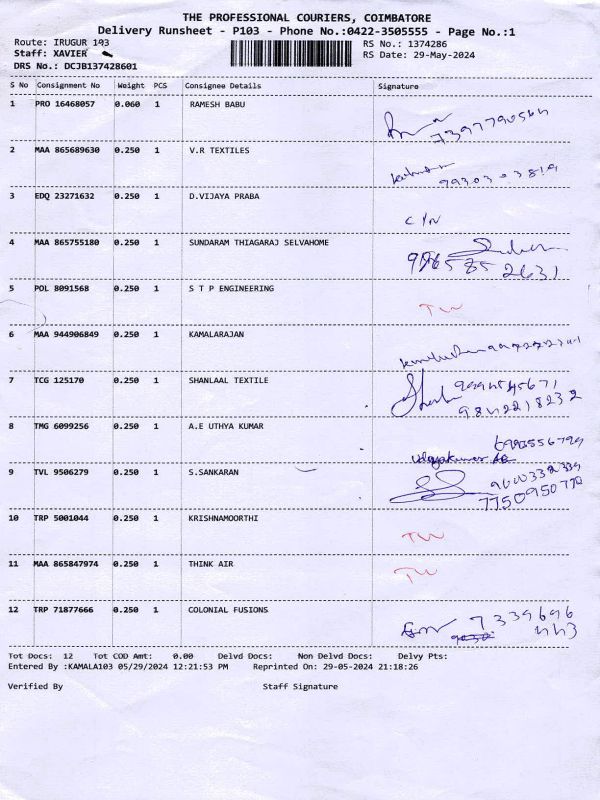 THE PROFESSIONAL COURIERS, COIMBATORE
Delivery Runsheet - P103 - Phone No.:0422-3505555 - Page No.:1
Route: IRUGUR 193 RS No.: 1374286
Staff: XAVIER RS Date: 29-May-2024
DRS No.: DCJB137428601
S No Consignment No Weight PCS Consignee Details Signature
1 PRO 16468057 0.060 1 RAMESH BABU
2 MAA 865689630 0.250 1 V.R TEXTILES
3 EDQ 23271632 0.250 1 D.VIJAYA PRABA
C/N
4 MAA 865755180 0.250 1 SUNDARAM THIAGARAJ SELVAHOME
5 POL 8091568 0.250 1 S T P ENGINEERING
6 MAA 944906849 0.250 1 KAMALARAJAN
7 TCG 125170 0.250 1 SHANLAAL TEXTILE
8 TMG 6099256 0.250 1 A.E UTHYA KUMAR
9 TVL 9506279 0.250 1 S.SANKARAN
7750950770
10 TRP 5001044 0.250 1 KRISHNAMOORTHI
11 MAA 865847974 0.250 1 THINK AIR
12 TRP 71877666 0.250 1 COLONIAL FUSIONS
7339696
443
Tot Docs: 12 Tot COD Amt: 0.00 Delvd Docs: Non Delvd Docs: Delvy Pts:
Entered By :KAMALA103 05/29/2024 12:21:53 PM Reprinted On: 29-05-2024 21:18:26
Verified By Staff Signature